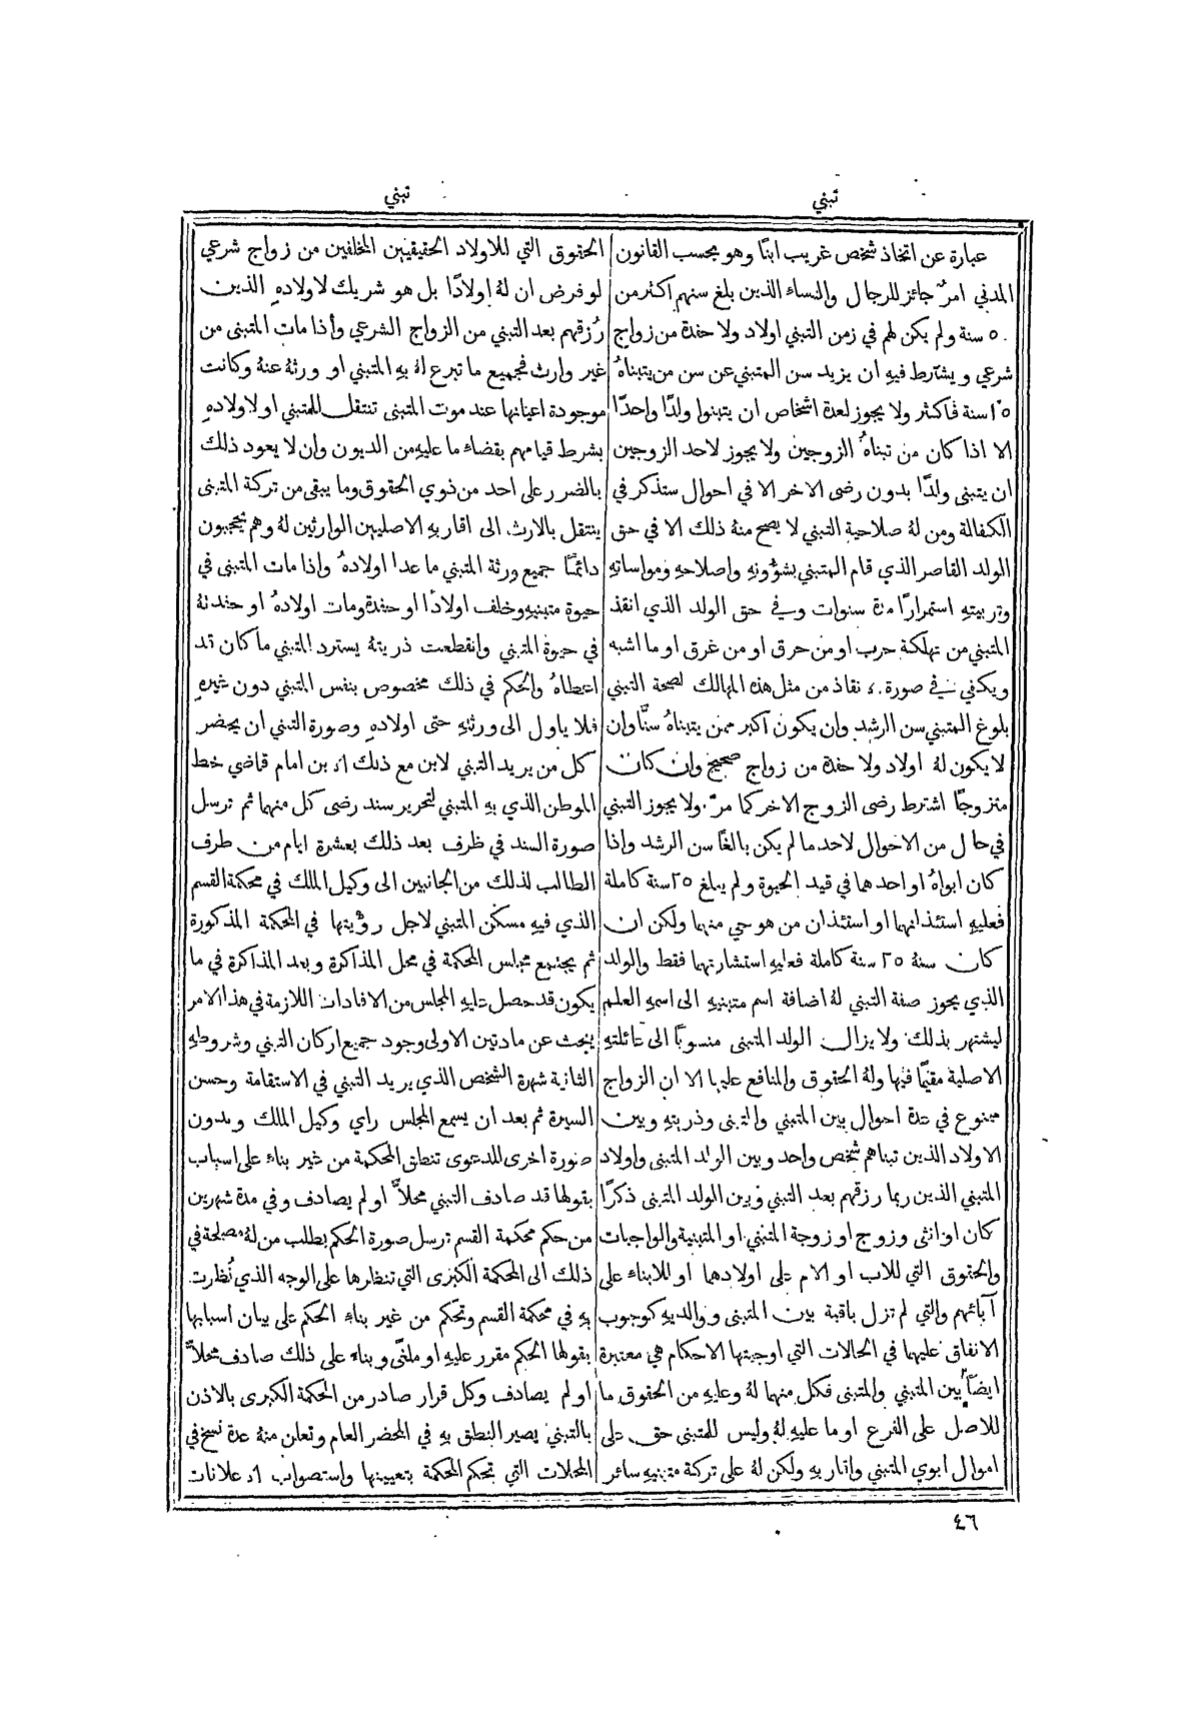 تبني
تبني
عبارة عن اتخاذ شخص غريب ابنًا وهو بحسب القانون
المدني امرٌ جائز للرجال والنساء الذين بلغ سنهم اكثر من
٥٠ سنة ولم يكن لهم في زمن التبني اولاد ولا حفدة من زواج
شرعي ويشترط فيهِ ان يزيد سن المتبني عن سن من يتبناهُ
١٥ سنة فاكثر ولا يجوز لعدة اشخاص ان يتبنوا ولدًا واحدًا
الا اذا كان من تبناهُ الزوجين ولا يجوز لاحد الزوجين
ان يتبنى ولدًا بدون رضى الاخر الا في احوال ستذكر في
الكفالة ومن لهُ صلاحية التبني لا يصح منهُ ذلك الا في حق
الولد القاصر الذي قام المتبني بشؤونهِ واصلاحهِ ومواساتهِ
وتربيتهِ استمرارًا مدة سنوات وفي حق الولد الذي انقذ
المتبني من تهلكة حرب او من حرق او من غرق او ما اشبه
ويكفي في صورة الانقاذ من مثل هذه المهالك لصحة التبني
بلوغ المتبني سن الرشد وان يكون اكبر ممن يتبناهُ سنًّا وان
لا يكون لهُ اولاد ولا حفدة من زواج صحيح وان كان
متزوجًا اشترط رضى الزوج الاخر كما مرّ. ولا يجوز التبني
في حال من الاحوال لاحد ما لم يكن بالغًا سن الرشد واذا
كان ابواهُ او احدهما في قيد الحيوة ولم يبلغ ٢٥ سنة كاملة
فعليهِ استئذانهما او استئذان من هو حي منهما ولكن ان
كان سنهُ ٢٥ سنة كاملة فعليهِ استشارتهما فقط والولد
الذي يجوز صفة التبني لهُ اضافة اسم متبنيهِ الى اسمهِ العلم
ليشتهر بذلك ولا يزال الولد المتبنى منسوبًا الى عائلتهِ
الاصلية مقيمًا فيها ولهُ الحقوق والمنافع عليها الا ان الزواج
ممنوع في عدة احوال بين المتبني والمتبنى وذريتهِ وبين
الاولاد الذين تبناهم شخص واحد وبين الولد المتبنى واولاد
المتبني الذين ربما رزقهم بعد التبني وبين الولد المتبنى ذكرًا
كان او انثى وزوج او زوجة المتبني او المتبنية والواجبات
والحقوق التي للاب او الام على اولادهما او للابناء على
آبائهم والتي لم تزل باقية بين المتبنى ووالديهِ كوجوب
الانفاق عليهما في الحالات التي اوجبتها الاحكام هي معتبرة
ايضًا بين المتبني والمتبنى فكل منهما لهُ وعليهِ من الحقوق ما
للاصل على الفرع او ما عليهِ لهُ وليس للمتبنى حق على
اموال ابوي المتبني واقاربهِ ولكن لهُ على تركة متبنيهِ سائر
الحقوق التي للاولاد الحقيقيين المخلفين من زواج شرعي
لو فرض ان لهُ اولادًا بل هو شريك لاولادهِ الذين
رُزقهم بعد التبني من الزواج الشرعي واذا مات المتبنى من
غير وارث فجميع ما تبرع لهُ بهِ المتبني او ورثهُ عنهُ وكانت
موجودة اعيانها عند موت المتبنى تنتقل للمتبني او لاولادهِ
بشرط قيامهم بقضاء ما عليهِ من الديون وان لا يعود ذلك
بالضرر على احد من ذوي الحقوق وما يبقى من تركة المتبنى
ينتقل بالارث الى اقاربهِ الاصليين الوارثين لهُ وهم يحجبون
دائمًا جميع ورثة المتبني ما عدا اولادهُ واذا مات المتبنى في
حيوة متبنيهِ وخلف اولادًا او حفدة ومات اولادهُ او حفدتهُ
في حيوة المتبني وانقطعت ذريتهُ يسترد المتبني ما كان قد
اعطاهُ والحكم في ذلك مخصوص بنفس المتبني دون غيرهِ
فلا ياول الى ورثتهِ حتى اولادهِ وصورة التبني ان يحضر
كل من يريد التبني لابن مع ذلك الابن امام قاضي خط
الموطن الذي بهِ المتبني لتحرير سند رضى كل منهما ثم ترسل
صورة السند في ظرف بعد ذلك بعشرة ايام من طرف
الطالب لذلك من الجانبين الى وكيل الملك في محكمة القسم
الذي فيهِ مسكن المتبني لاجل رؤيتها في المحكمة المذكورة
ثم يجتمع مجلس المحكمة في محل المذاكرة وبعد المذاكرة في ما
يكون قد حصل عليهِ المجلس من الافادات اللازمة في هذا الامر
يبحث عن مادتين الاولى وجود جميع اركان التبني وشروطهِ
الثانية شهرة الشخص الذي يريد التبني في الاستقامة وحسن
السيرة ثم بعد ان يسمع المجلس راي وكيل الملك وبدون
صورة اخرى للدعوى تنطق المحكمة من غير بناء على اسباب
بقولها قد صادف التبني محلاًّ او لم يصادف وفي مدة شهرين
من حكم محكمة القسم ترسل صورة الحكم بطلب من لهُ مصلحة في
ذلك الى المحكمة الكبرى التي تنظرها على الوجه الذي نُظرت
بهِ في محكمة القسم وتحكم من غير بناءِ الحكم على بيان اسبابها
بقولها الحكم مقرر عليهِ او ملغًى وبناء على ذلك صادف محلاًّ
او لم يصادف وكل قرار صادر من المحكمة الكبرى بالاذن
بالتبني يصير النطق بهِ في المحضر العام وتعلن منهُ عدة نسخ في
المحلات التي تحكم المحكمة بتعيينها واستصواب الاعلانات
٤٦